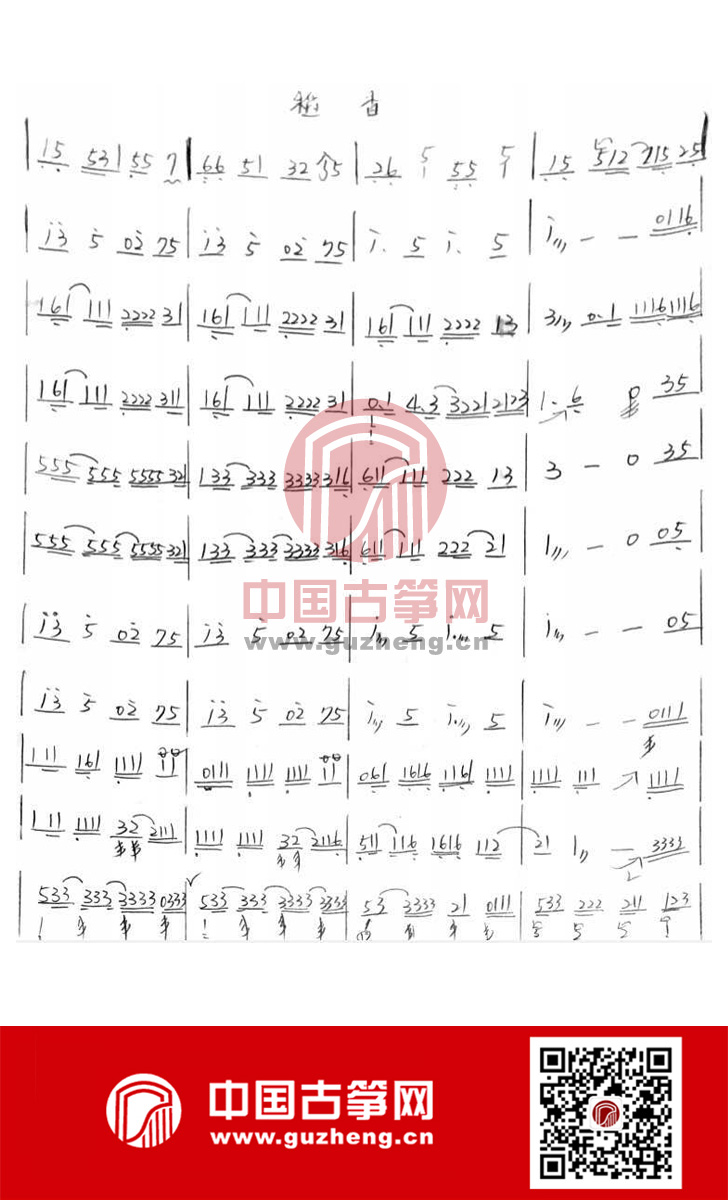 稻香
| 15 531 55 7 | 66 51 32 35 | 26 5 55 5 | 15 512 715 25 |
| i3 5 02 75 | i3 5 02 75 | i. 5 i. 5 | i,,, – – 0116 |
| 161 111 2222 31 | 161 111 2222 31 | 161 111 2222 13 | 3,,, 0.1 1116 1116 |
| 161 111 2222 311 | 161 111 2222 31 | 0.1 4.3 3221 2123 | 1. 6 0 35 |
| 555 555 5555 321 | 133 333 3333 316 | 611 111 222 13 | 3 – 0 35 |
| 555 555 5555 321 | 133 333 3333 316 | 611 111 222 21 | 1,,, – 0 05 |
中国古筝网
www.guzheng.cn
| i3 5 02 75 | i3 5 02 75 | i,,, 5 i.,,, 5 | i,,, – – 05 |
| i3 5 02 75 | i3 5 02 75 | i,,, 5 i.,,, 5 | i,,, – – 0111 |
| 111 161 1111 11 | 0111 1111 1111 11 | 061 1616 1161 1111 | 1111 111 1111 |
| 111 1111 32 2111 | 1111 1111 32 2116 | 511 116 1616 112 | 21 1,, – 3333 |
| 533 333 3333 0333 | 533 333 3333 3333 | 53 3333 21 0111 | 533 222 211 123 |
中国古筝网
www.guzheng.cn